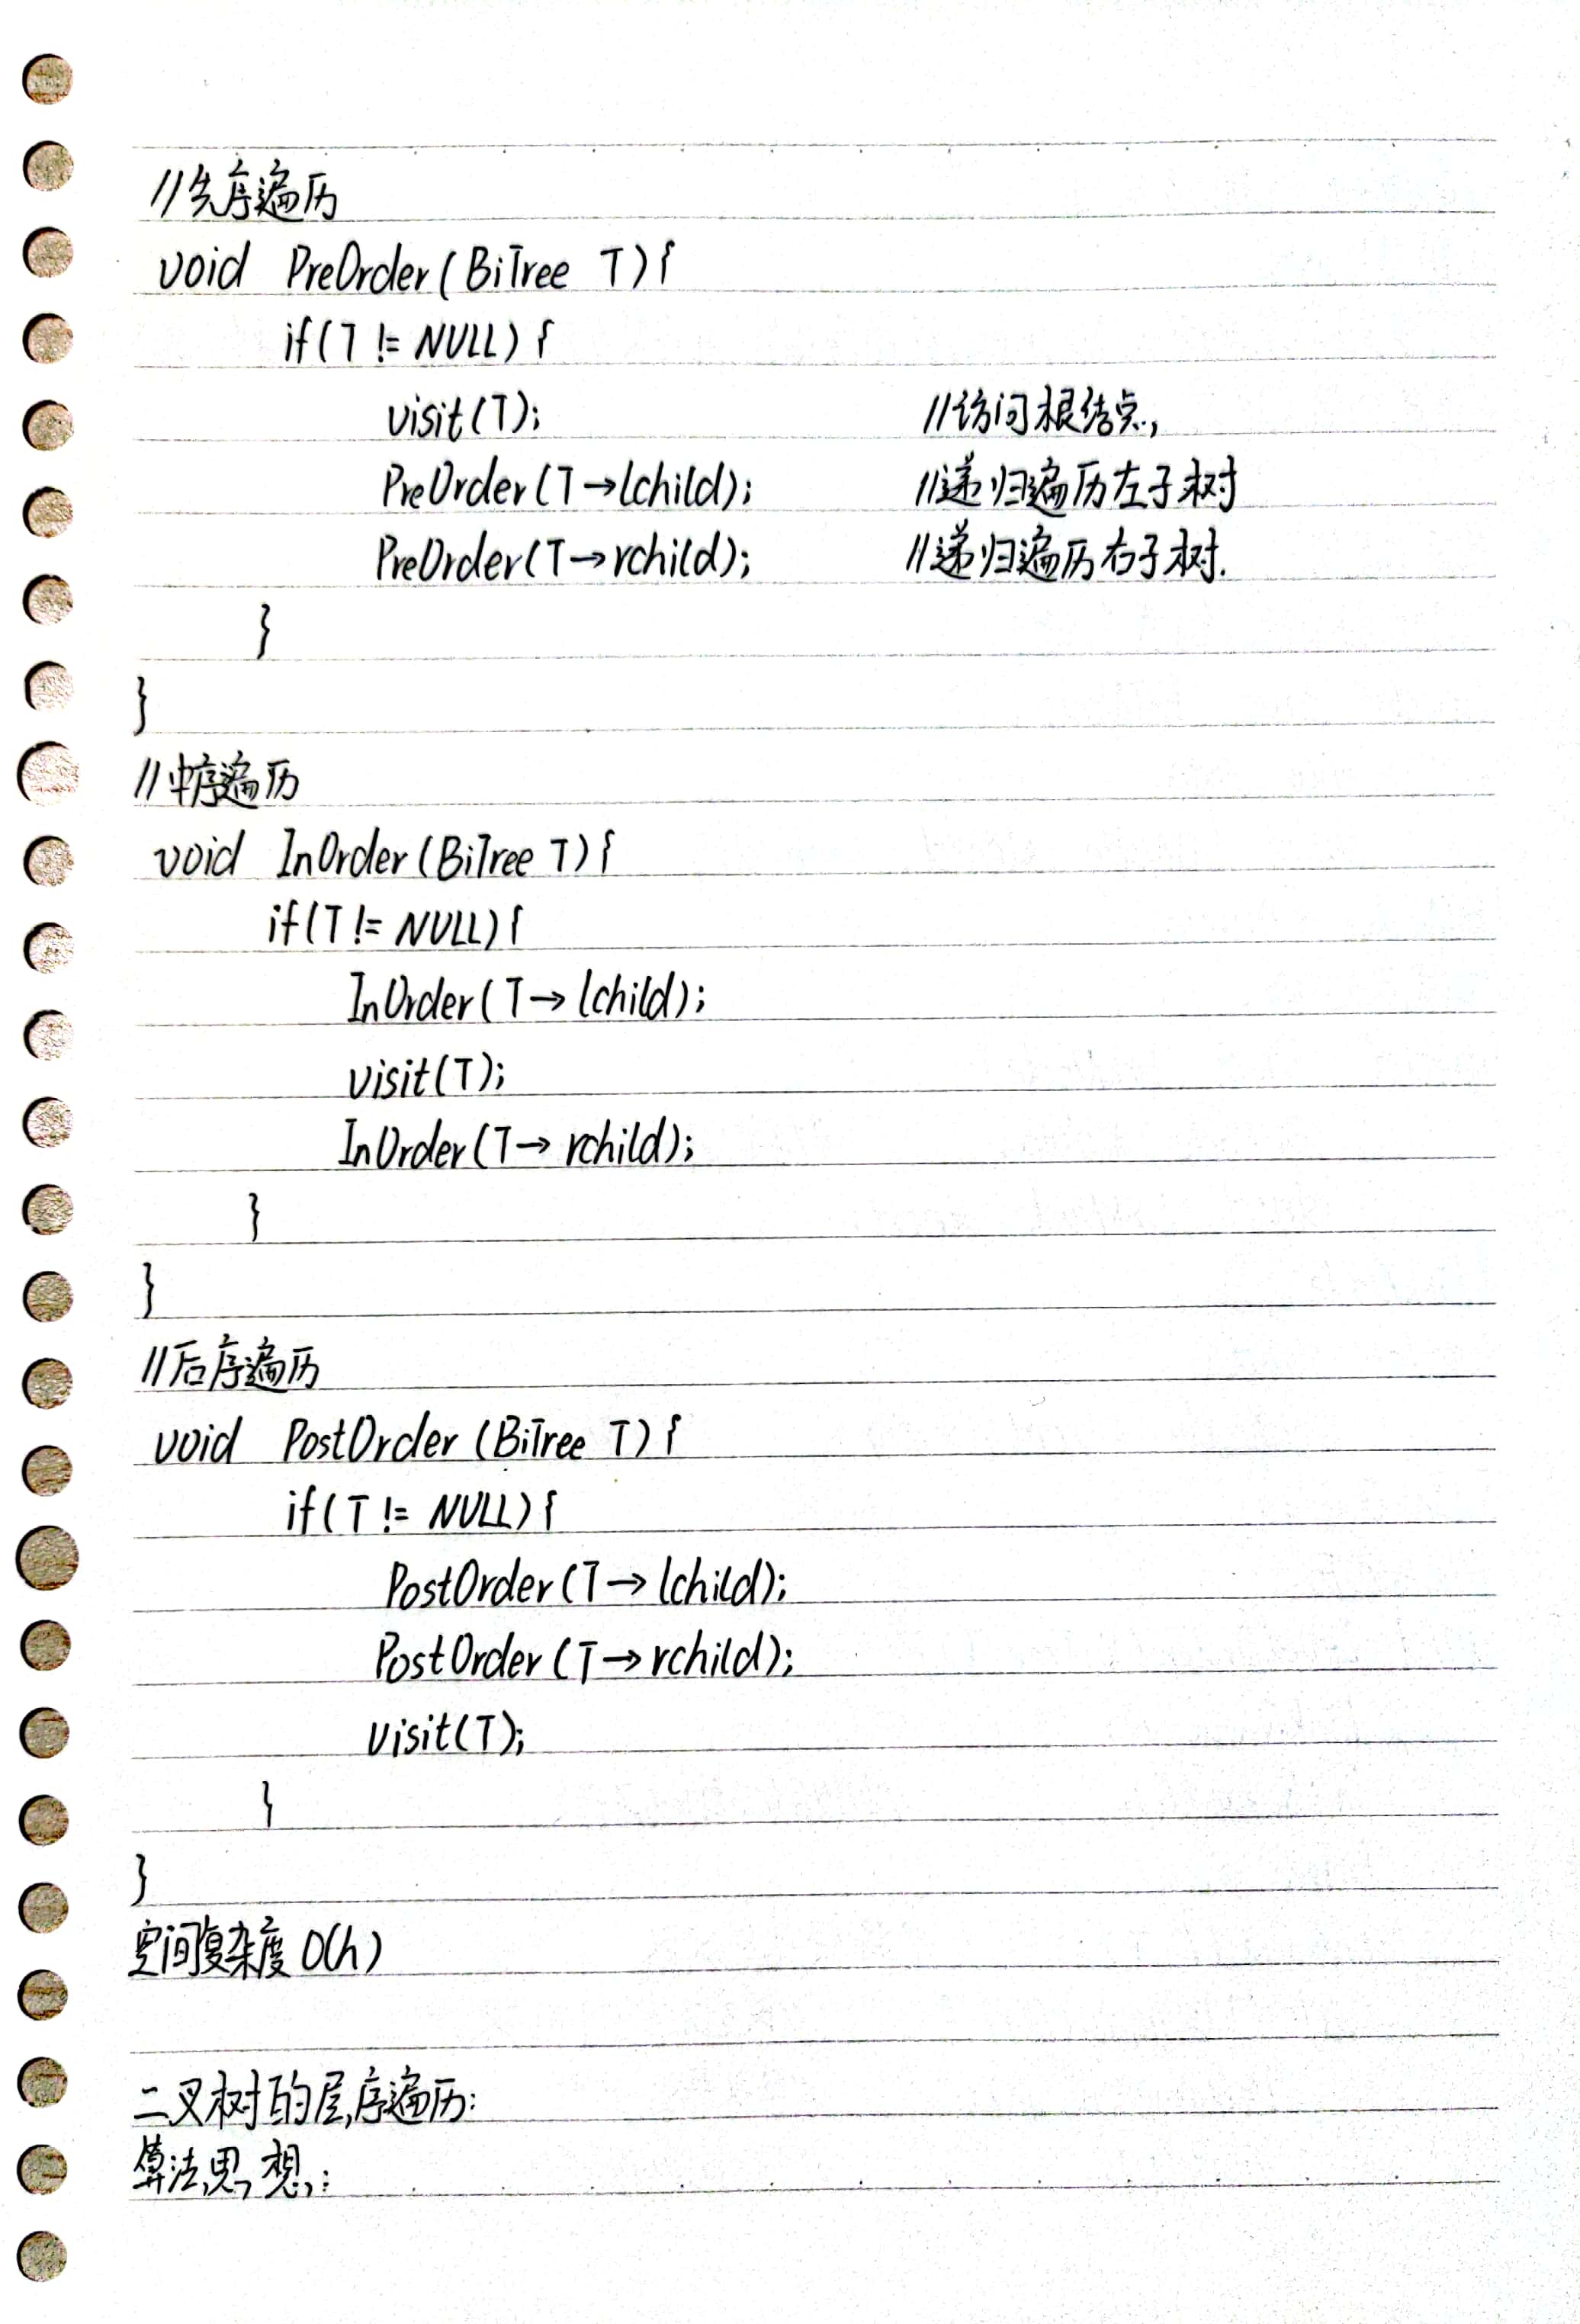 //先序遍历
void PreOrder(BiTree T){
if(T != NULL){
visit(T); //访问根结点
PreOrder(T→lchild); //递归遍历左子树
PreOrder(T→rchild); //递归遍历右子树.
}
}
//中序遍历
void InOrder(BiTree T){
if(T != NULL){
InOrder(T→lchild);
visit(T);
InOrder(T→rchild);
}
}
//后序遍历
void PostOrder(BiTree T){
if(T != NULL){
PostOrder(T→lchild);
PostOrder(T→rchild);
visit(T);
}
}
空间复杂度 O(h)
二叉树的层序遍历:
算法思想: